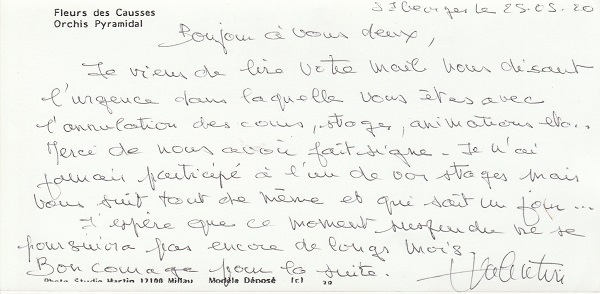 Fleurs des Causses
Orchis Pyramidal
St Georges le 25.05.20
Bonjour à vous deux,
Je viens de lire votre mail nous disant
l'urgence dans laquelle vous êtes avec
l'annulation des cours, stages, animations etc..
Merci de nous avoir fait signe. Je n'ai
jamais participé à l'un de vos stages mais
vous suit tout de même et qui sait un jour...
J'espère que ce moment suspendu ne se
poursuivra pas encore de longs mois
Bon courage pour la suite.
Valentin
Photo Studio Martin 12100 Millau Modèle Déposé (c) 20